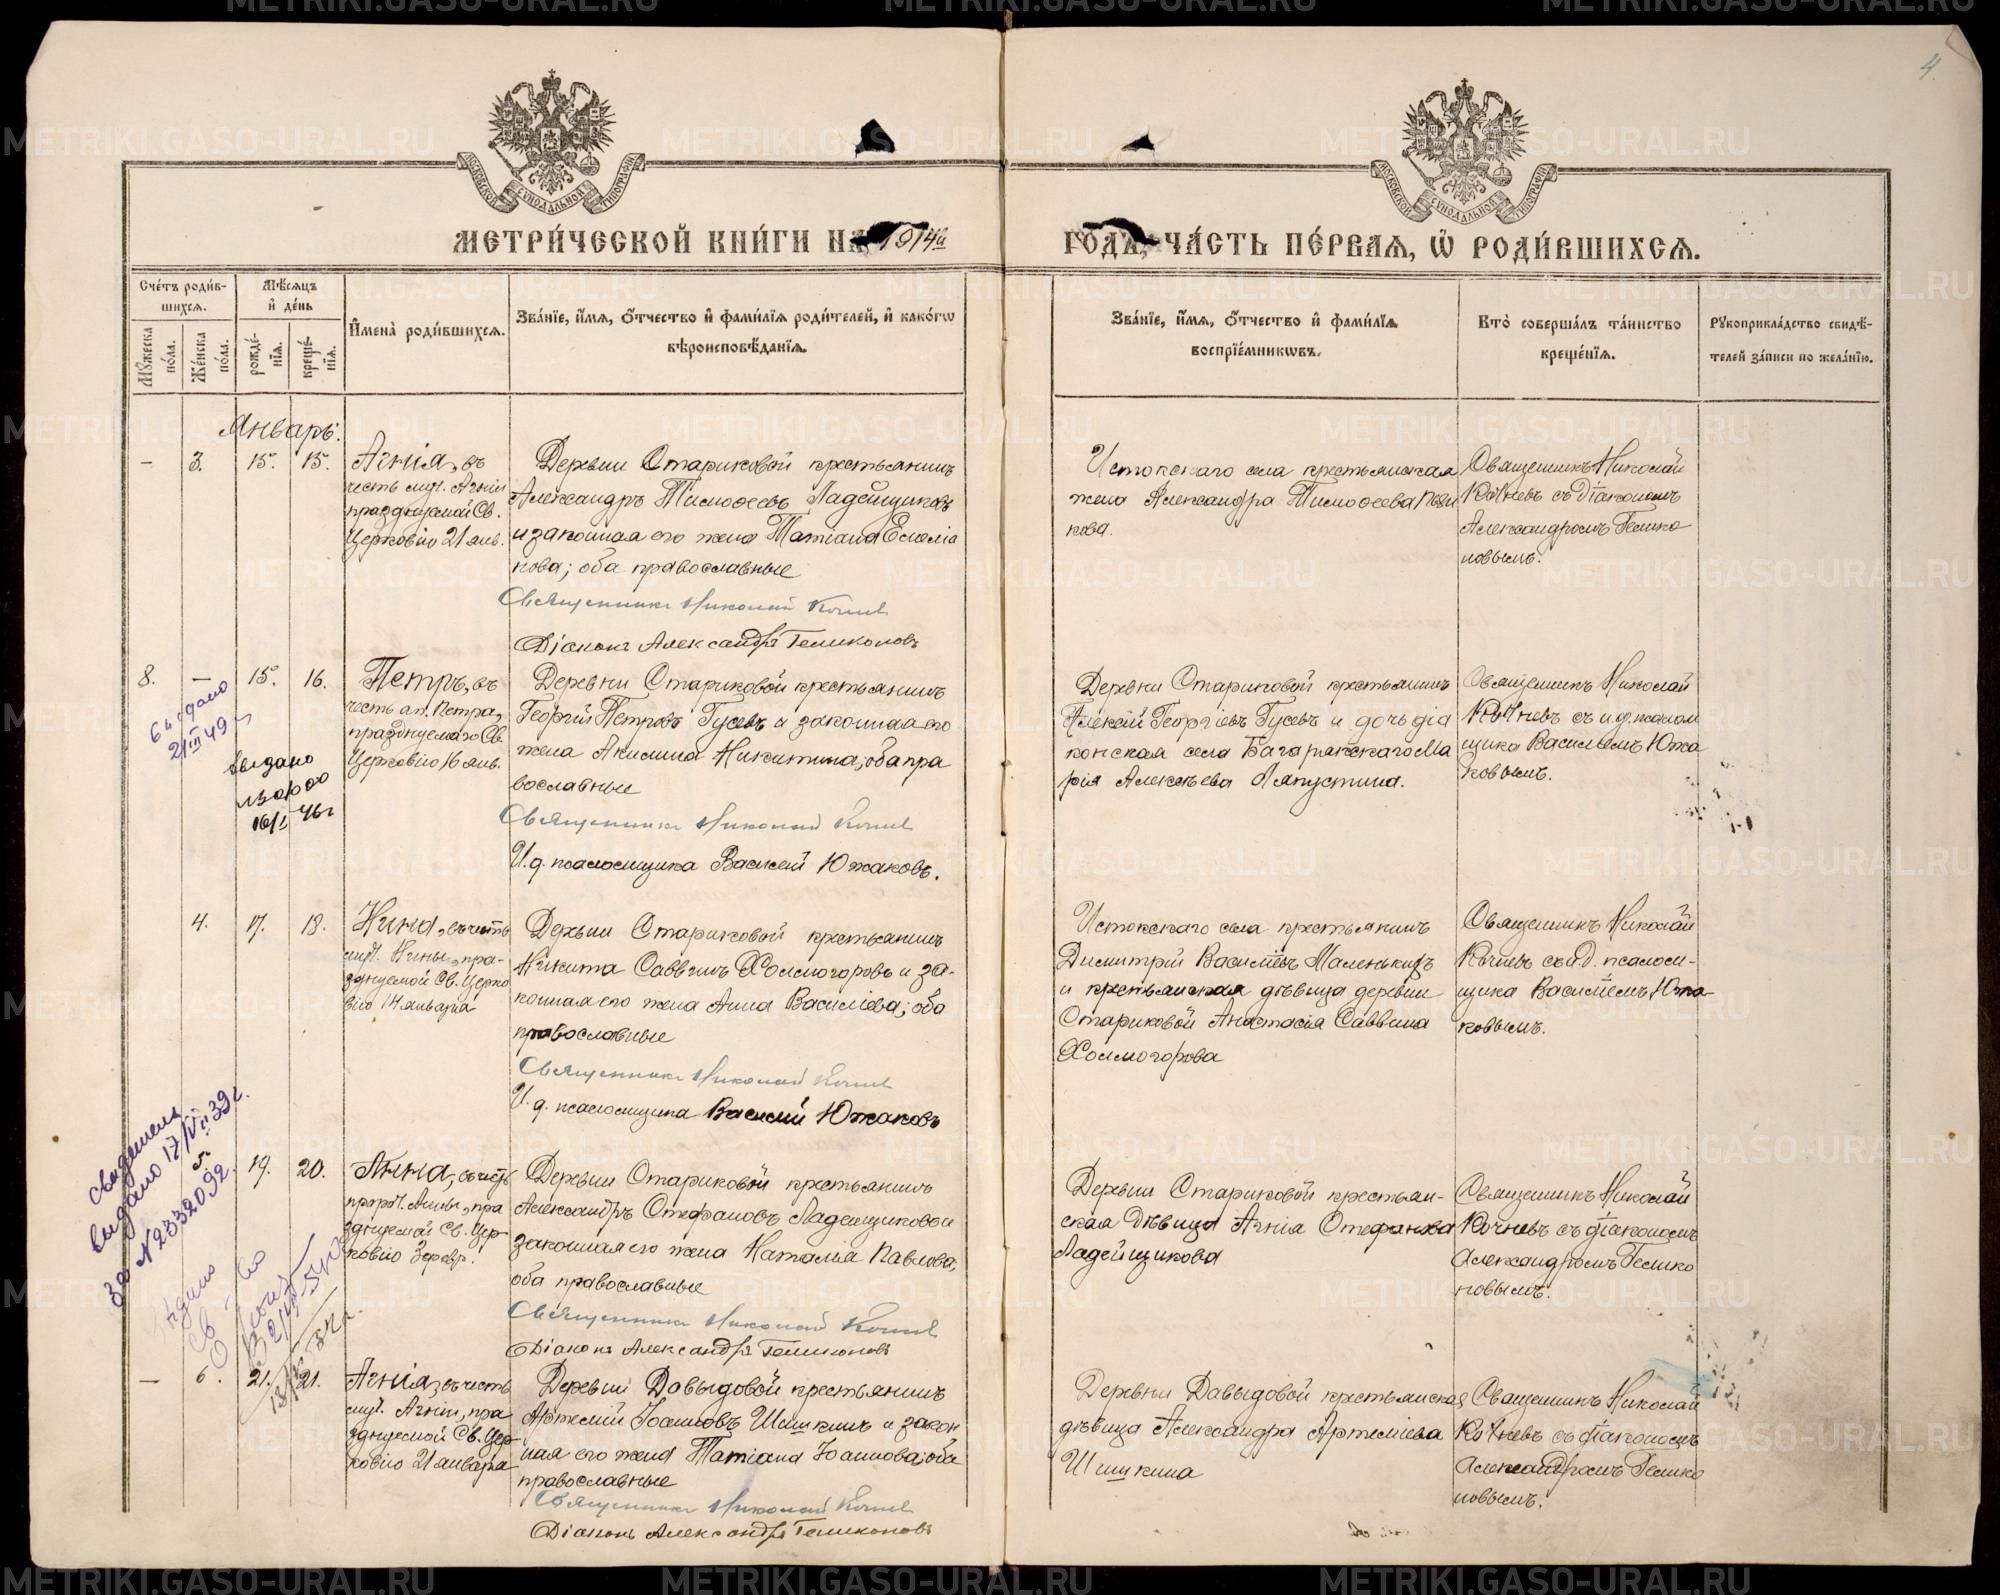 4.
МЕТРИ́ЧЕСКОЙ КНИ́ГИ НА 1914й ГОДЪ, ЧА́СТЬ ПЕ́РВАЯ, Ѡ҆ РОДИ́ВШИХСЯ.
МОСКОВСКОЙ СУНОДАЛЬНОЙ ТИПОГРАФІИ
МОСКОВСКОЙ СУНОДАЛЬНОЙ ТИПОГРАФІИ
Сче́тъ роди́в-
шихся.
Мꙋжеска по́ла.
Же́нска по́ла.
Мѣ́сяцъ
и҆ де́нь
рожде́-
нїя.
креще́-
нїя.
И҆мена̀ роди́вшихся.
Зва́нїе, и҆́мя, ѻ҆́тчество и҆ фами́лїя роди́телей, и҆ како́гѡ
вѣроисповѣ́данїя.
Зва́нїе, и҆́мя, ѻ҆́тчество и҆ фами́лїя
воспрїе́мникѡвъ.
Кто̀ соверша́лъ та́инство
креще́нїя.
Рꙋкоприкла́дство свидѣ́-
телей за́писи по жела́нїю.
Январь.
– 3. 15. 15.
Агнія, въ
честь муч. Агніи
празднуемой Св.
Церковію 21 янв.
Деревни Стариковой крестьянинъ
Александръ Тимоѳеевъ Ладейщиковъ
и законная его жена Татіана Емеліа
нова; оба православные
Священникъ Николай Кочнев
Діаконъ Александръ Геликоновъ
Истокскаго села крестьянская
жена Александра Тимоѳеева
кова.
Священникъ Николай
Кочневъ съ діакономъ
Александромъ Гелико
новымъ.
8. – 15. 16.
Петръ, въ
честь ап. Петра,
празднуемаго Св.
Церковію 16 янв.
Деревни Стариковой крестьянинъ
Георгій Петровъ Гусевъ и законная его
жена Акилина Никитина; оба пра
вославные
Священникъ Николай Кочнев
И. д. псаломщика Василій Южаковъ.
Деревни Стариковой крестьянинъ
Алексій Георгіевъ Гусевъ и дочь діа
конская села Багарякскаго Ма
рія Алексѣева Ляпустина.
Священникъ Николай
Кочневъ съ и.д. псалом
щика Васильемъ Южа
ковымъ.
выдано
21/III 49 г
выдано
16/I 46 г
4. 17. 18.
Нина, въ честь
муч. Нины, пра-
зднуемой Св. Церко
вію 14 января
Деревни Стариковой крестьянинъ
Никита Саввинъ Холмогоровъ и за-
конная его жена Анна Васильева; оба
православные
Священникъ Николай Кочнев
И. д. псаломщика Василій Южаковъ
Истокскаго села крестьянинъ
Димитрій Васильевъ Маленькихъ
и крестьянская дѣвица деревни
Стариковой Анастасія Саввина
Холмогорова
Священникъ Николай
Кочневъ съ и.д. псалом-
щика Васильемъ Южа
ковымъ.
выдано 17/VII 39 г.
за № 2332092
5. 19. 20.
Анна, въ честь
пророч. Анны, пра
зднуемой Св. Цер-
ковію 3 февр.
Деревни Стариковой крестьянинъ
Александръ Стефановъ Ладейщиковъ и
законная его жена Наталія Павлова;
оба православные
Священникъ Николай Кочнев
Діаконъ Александръ Геликоновъ
Деревни Стариковой крестьян-
ская дѣвица Агнія Стефанова
Ладейщикова
Священникъ Николай
Кочневъ съ діакономъ
Александромъ Гелико
новымъ.
– 6. 21. 21.
Агнія, въ честь
муч. Агніи, пра
зднуемой Св. Цер-
ковію 21 января
Деревни Давыдовой крестьянинъ
Артемій Іоанновъ Шишкинъ и закон
ная его жена Татіана Іоаннова; оба
православные
Священникъ Николай Кочнев
Діаконъ Александръ Геликоновъ
Деревни Давыдовой крестьянская
дѣвица Александра Артеміева
Шишкина
Священникъ Николай
Кочневъ съ діакономъ
Александромъ Гелико
новымъ.
METRIKI.GASO-URAL.RU